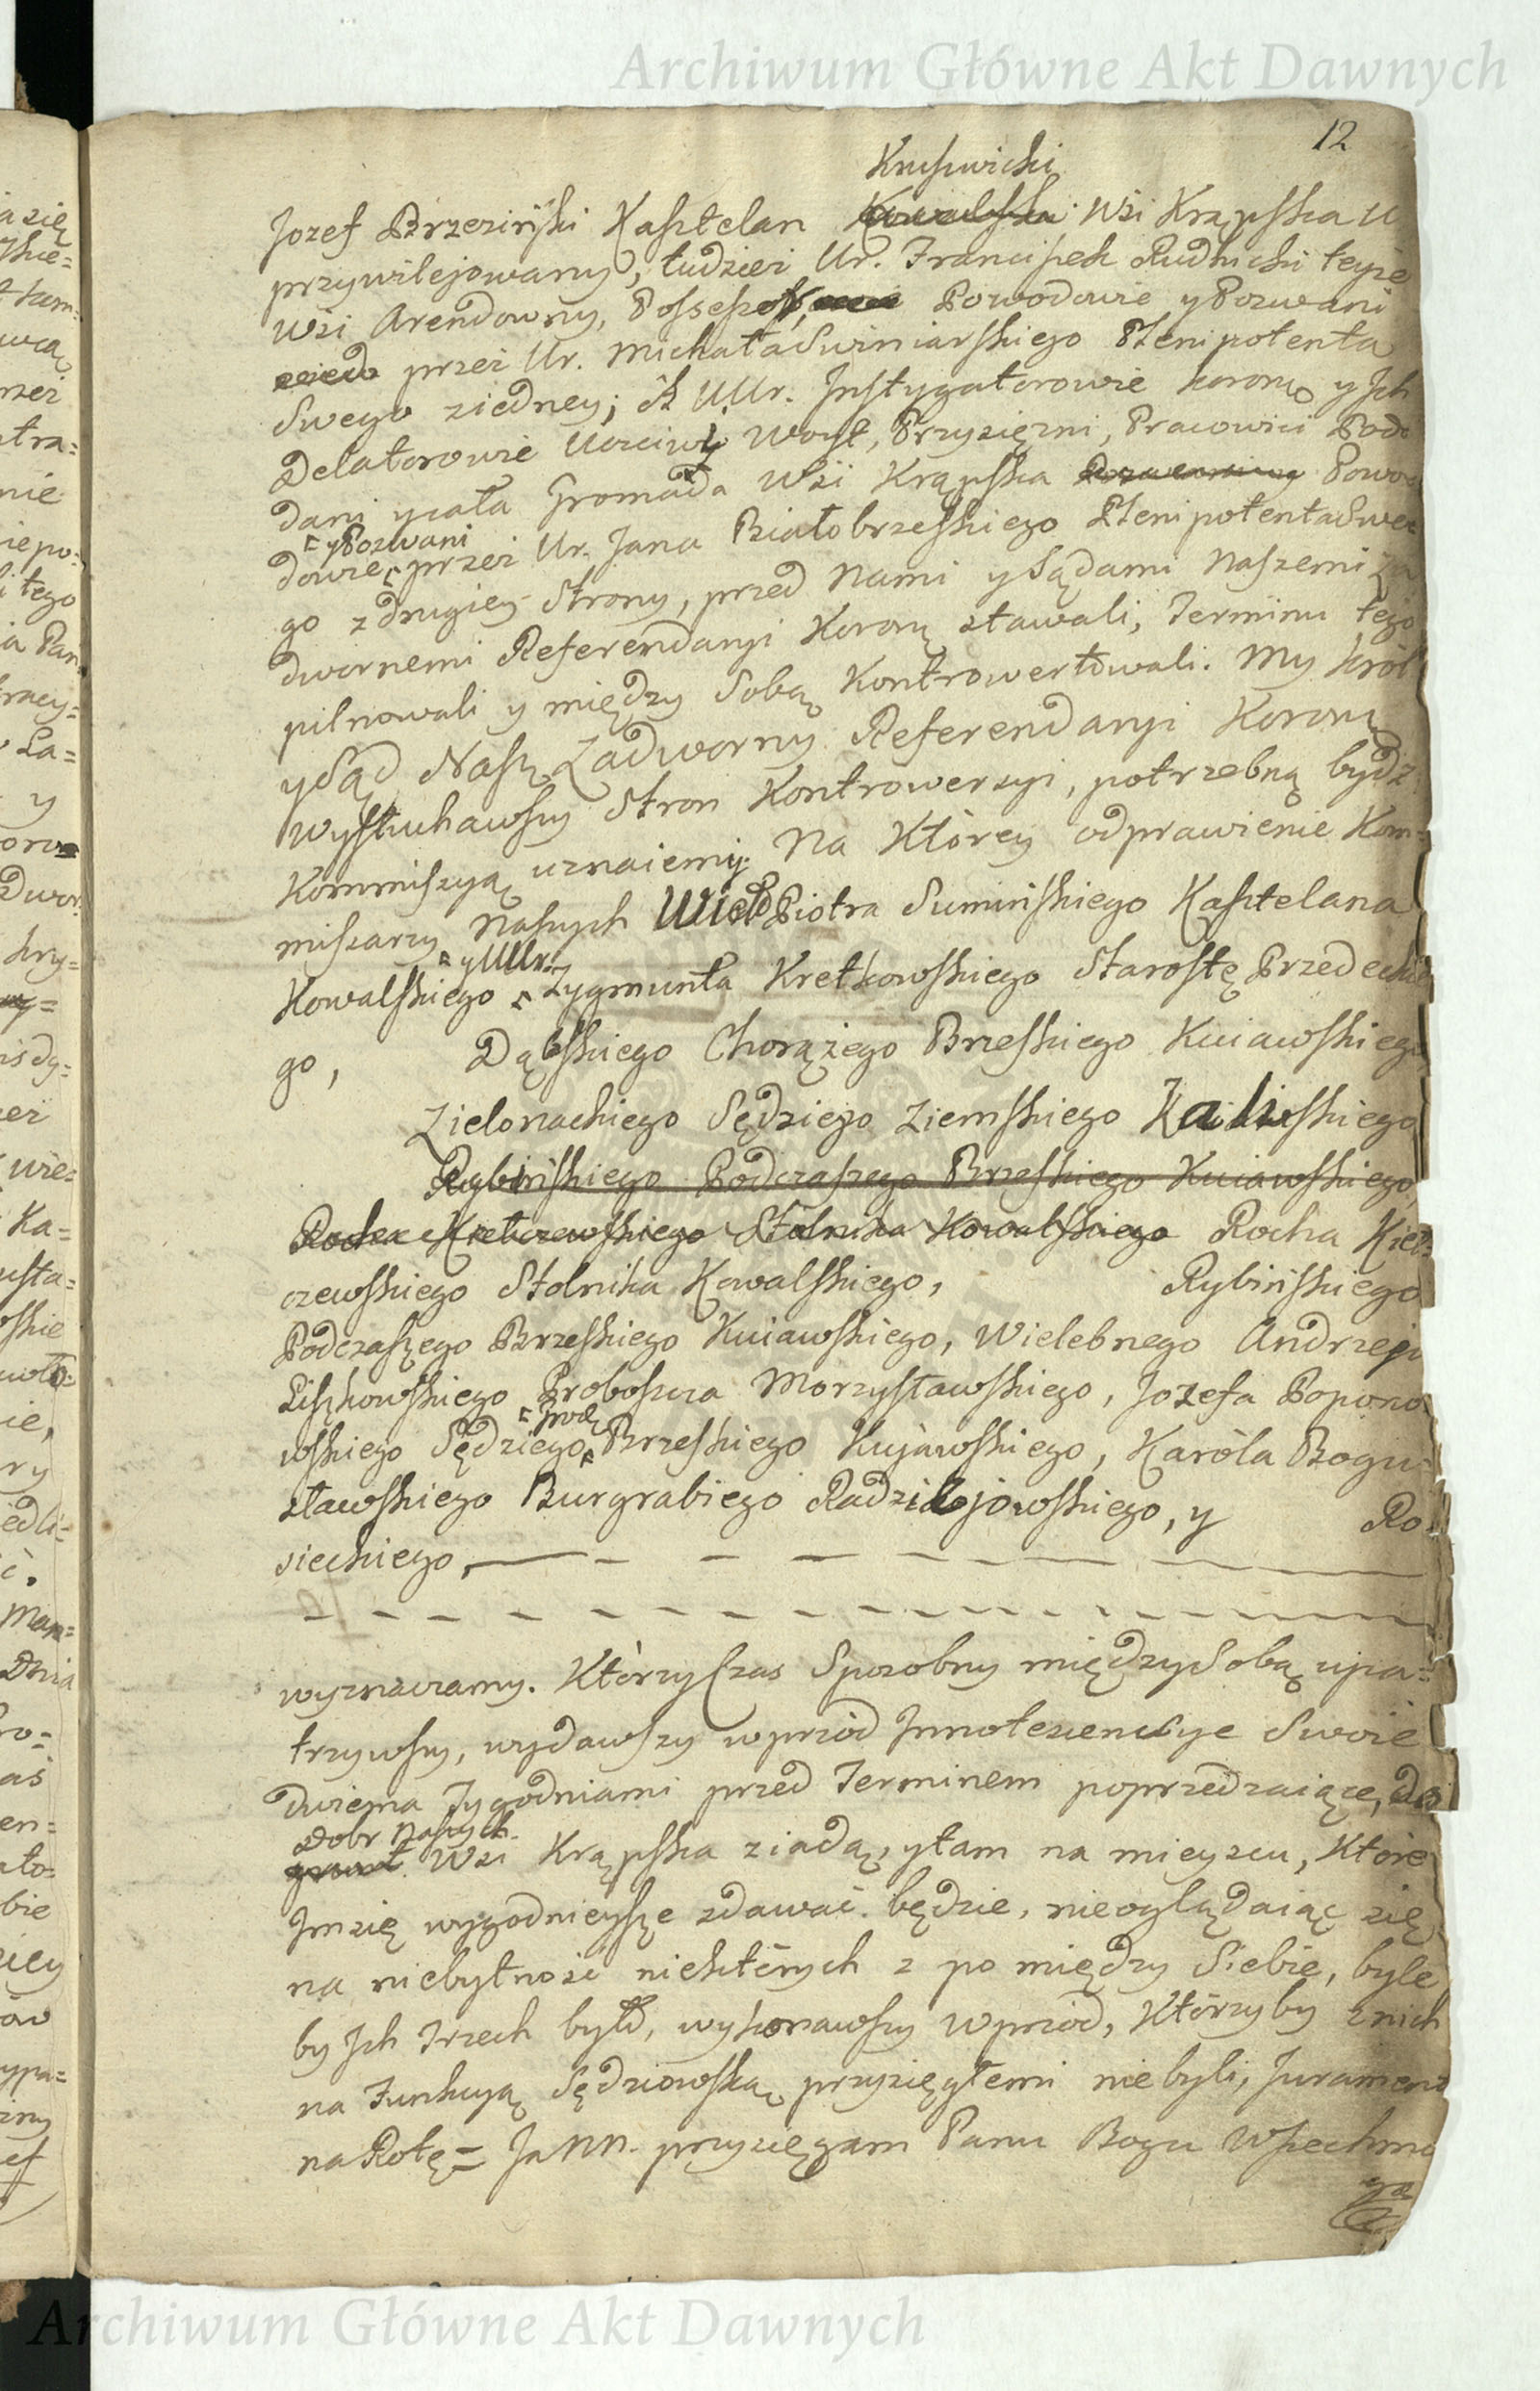 Archiwum Główne Akt Dawnych
12
Kruszwicki
Jozef Brzeziński Kasztelan Kowalski Wsi Krząpska U
przywilejowany, tudziez Ur. Franciszek Rudnicki teyze
Wsi Arendowny, Possessor, Powodowie y Pozwani
przez Ur. Michała Swiniarskiego Plenipotenta
Swego ziedney; A UUr. Instygatorowie koronŋ y Jch
Delatorowie Uczciwy Woyt, Przysięzni, Pracowici Pod
dani y cała Gromada Wsi Krąpska Powo
y Pozwani
dowie przez Ur. Jana Białobrzeskiego Plenipotenta Swe
go z drugiey Strony, przed Nami y Sądami Naszemi Za
dwornemi Referendaryi Koronŋ stawali, Terminu tego
pilnowali y między Sobą Kontrowertowali. My Krol
y Sąd Nasz Zadworny Referendaryi Koronŋ
wysłuchawszy Stron Kontrowersyi, potrzebną bydz
Kommiszyą uznaiemy. Na Ktorey odprawienie Kom=
miszarzy Naszych Wielo Piotra Suminskiego Kasztelana
y UUr.
Kowalskiego Zygmunta Kretkowskiego Starostę Przedeckie
go, Dąbskiego Chorążego Brzeskiego Kuiawskiego
Zielonackiego Sędziego Ziemskiego Kaliskiego
Rybińskiego Podczaszego Brzeskiego Kuiawskiego
Rocha Kiełczewskiego Stolnika Kowalskiego Rocha Kieł=
czewskiego Stolnika Kowalskiego, Rybińskiego
Podczaszego Brzeskiego Kuiawskiego, Wielebnego Andrzeja
Liszkowskiego Proboszcza Morzysławskiego, Jozefa Popono
Grodŋ
wskiego Sędziego Brzeskiego Kujawskiego, Karòla Bogu=
sławskiego Burgrabiego Radziejowskiego, y Ro=
siechiego,
wyznaczamy. Którzy Czas Sposobny między Sobą upa=
trzywszy, wydawszy wprzod Innotescencye Swoie
dwiema Tygodniami przed Terminem poprzedzaiące, do
Dobr Naszych
grunt Wsi Krąpska ziadą, y tam na mieyscu, Które
Jm się wygodnieysze zdawać będzie, nieoglądaiąc się
na niebytnosc niektórych z po między Siebie, byle
by Jch Trzech było, wykonawszy wprzod, Którzyby z nich
na Funkcyą Sędziowską przysięgłemi niebyli, Jurament
na Rotę = Ja NN. przysięgam Panu Bogu Wszechmo
Archiwum Główne Akt Dawnych